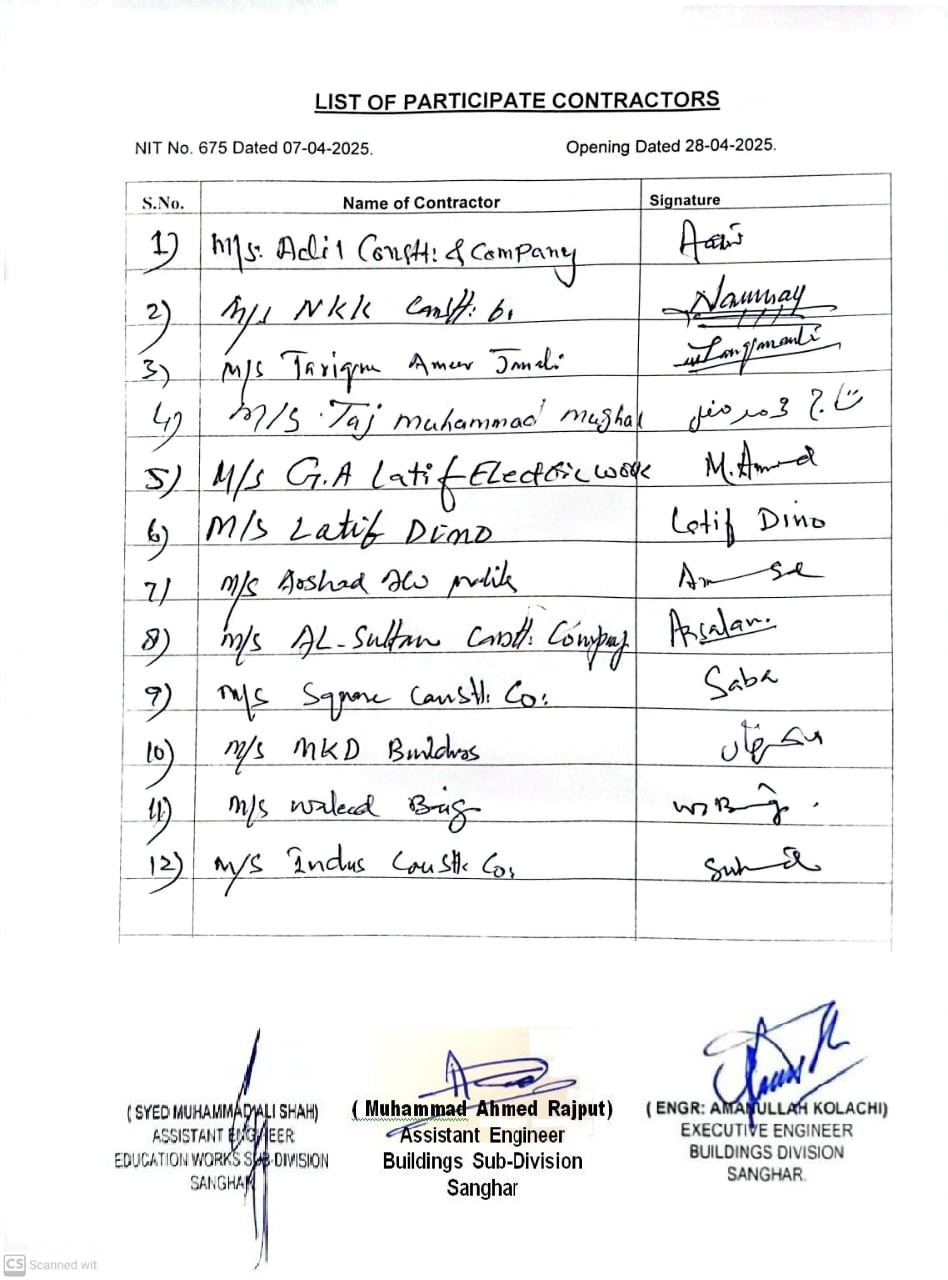 LIST OF PARTICIPATE CONTRACTORS
NIT No. 675 Dated 07-04-2025. Opening Dated 28-04-2025.
S.No. Name of Contractor Signature
1) M/s. Adil Constt: & Company
2) M/s NKK Constt: Co. Naumay
3) M/S Tarique Ameer Jmali
4) M/S Taj muhammad mughal تاج محمد مغل
5) M/s G.A Latif Electric work M.Amed
6) M/S Latif DINO Latif Dino
7) M/s
8) M/s AL-Sultan Constt: Company Arsalan.
9) M/s Square Constt: Co: Saba
10) M/s MKD Builders
11) M/s waleed Baig
12) M/S Indus Constt: Co:
( SYED MUHAMMAD ALI SHAH)
ASSISTANT ENGINEER
EDUCATION WORKS SUB-DIVISION
SANGHAR
( Muhammad Ahmed Rajput)
Assistant Engineer
Buildings Sub-Division
Sanghar
( ENGR: AMANULLAH KOLACHI)
EXECUTIVE ENGINEER
BUILDINGS DIVISION
SANGHAR.
CS Scanned wit